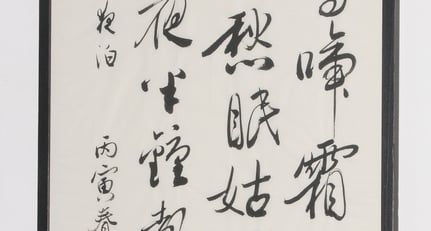 啼霜
愁眠姑
夜半鐘
夜泊 丙寅春